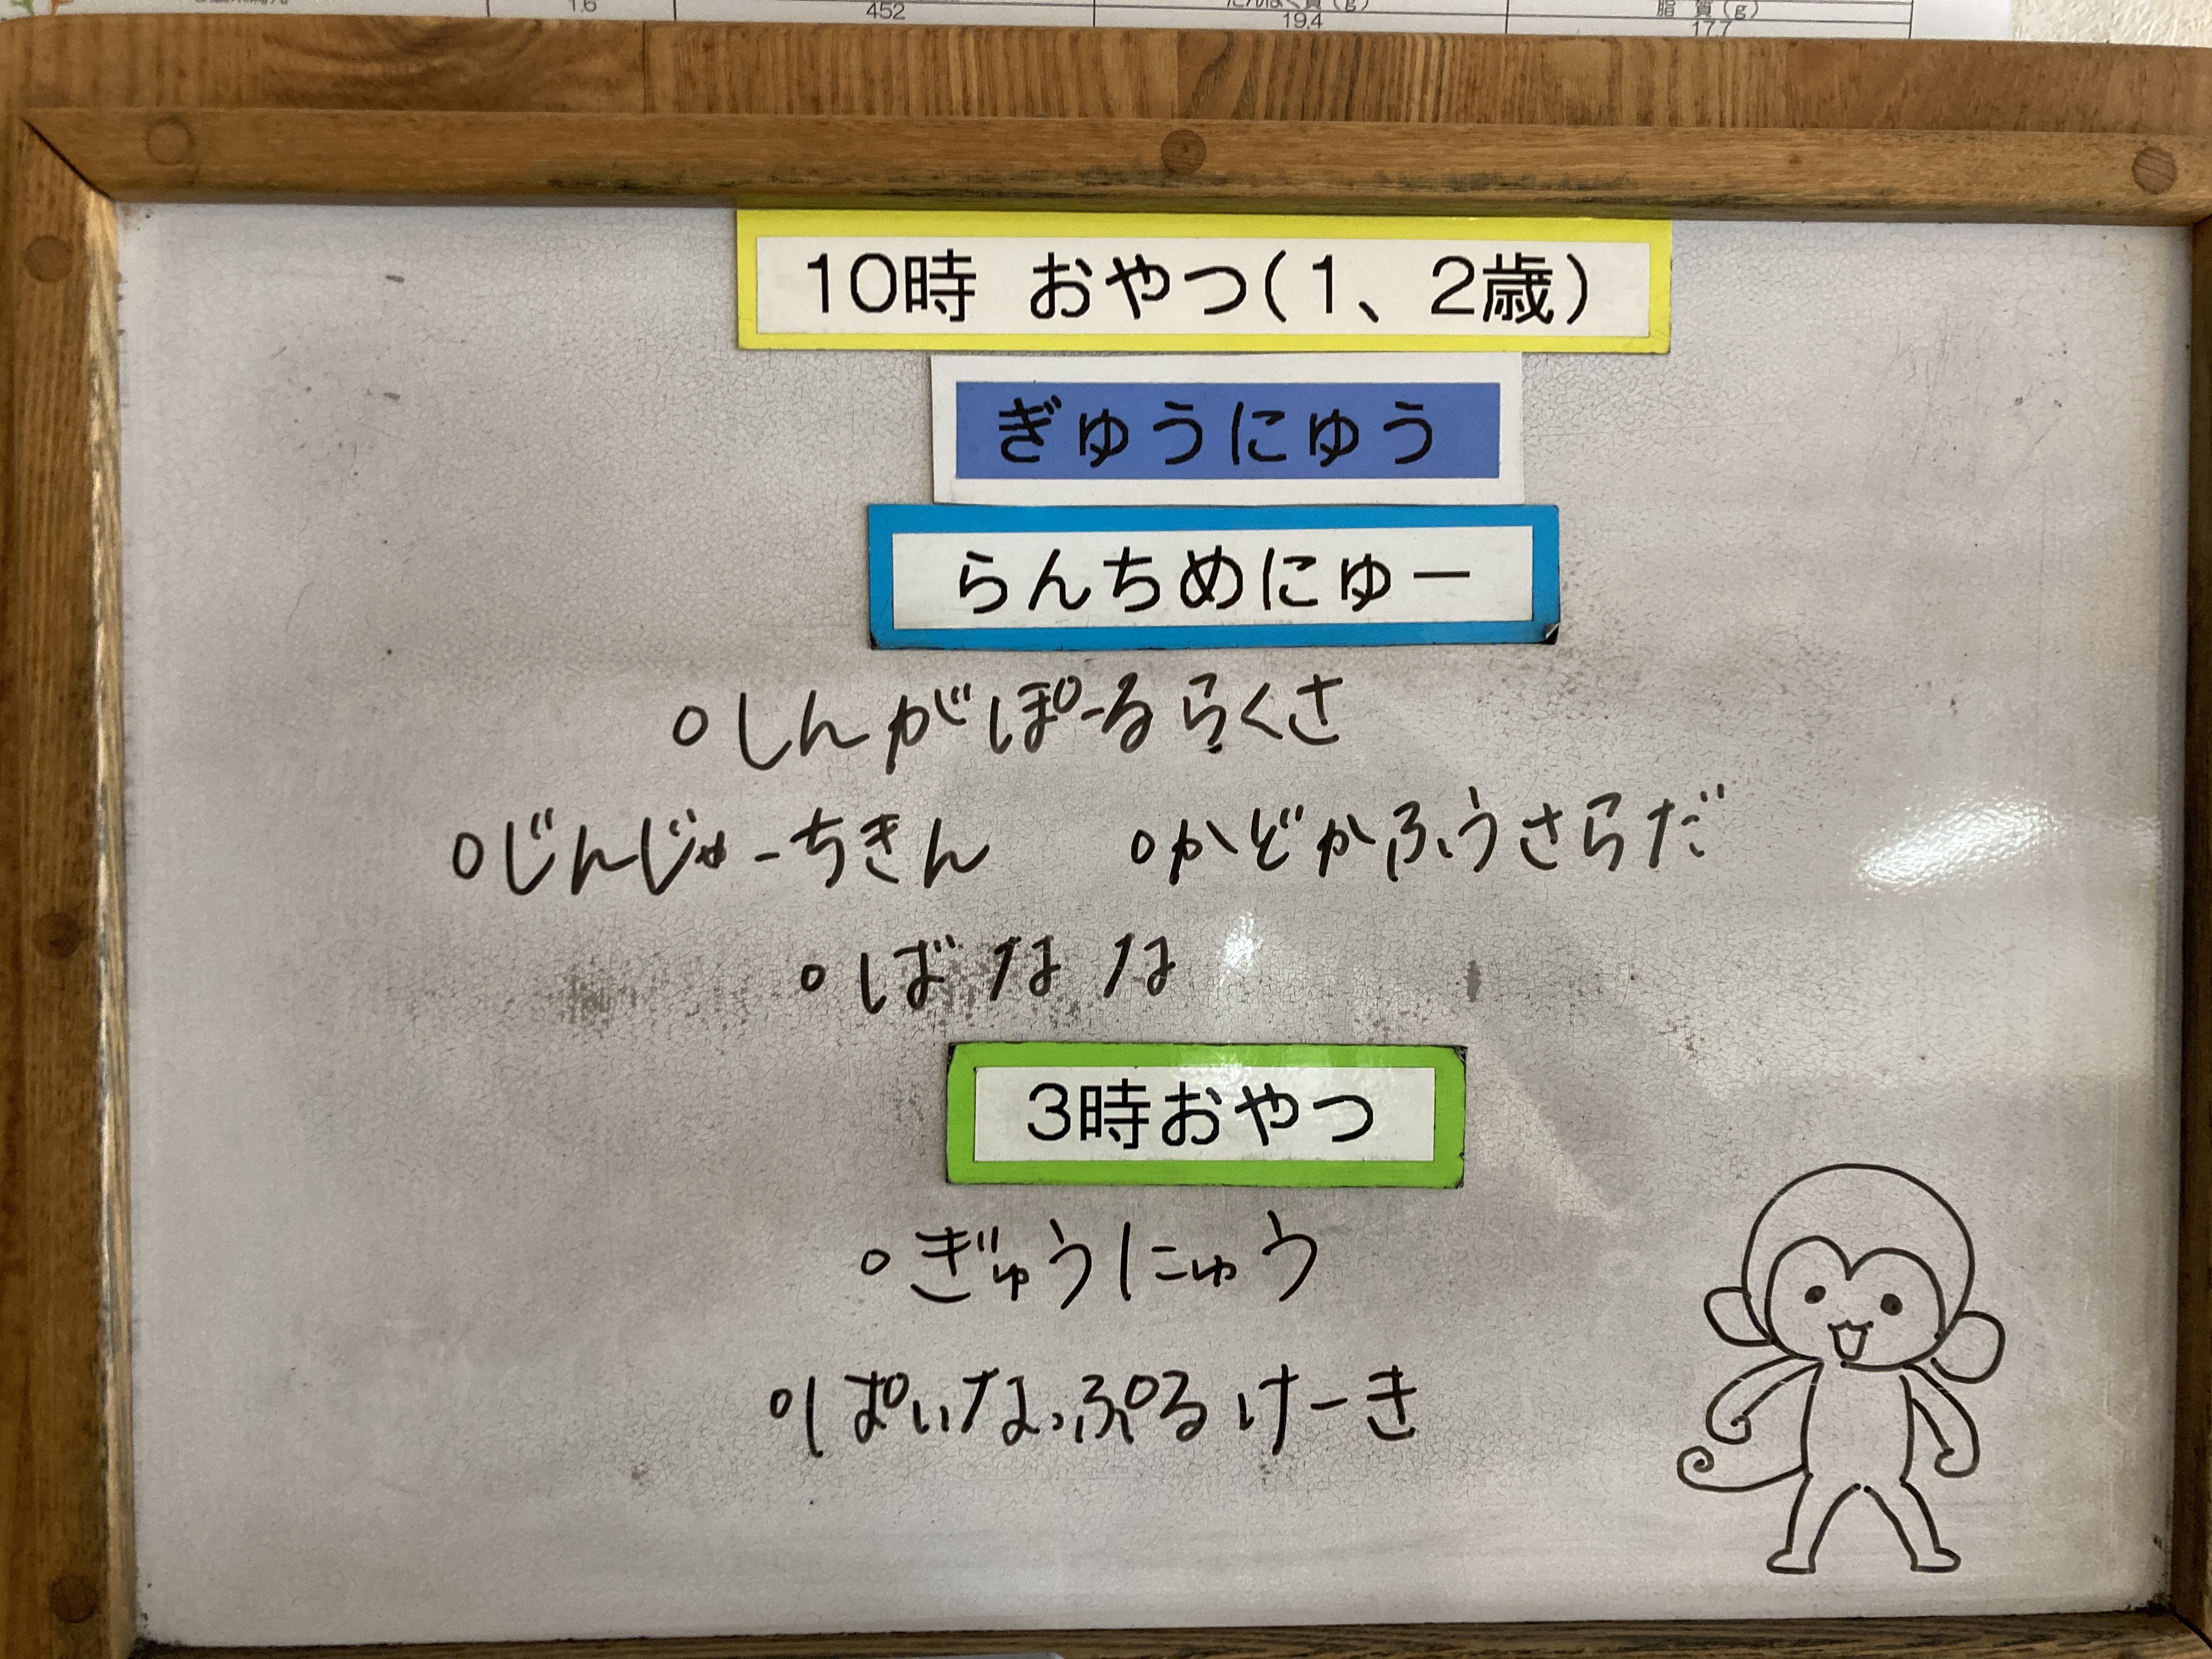 1.6 452 たんぱく質(g) 脂 質(g)
19.4 17.7
10時 おやつ(1、2歳)
ぎゅうにゅう
らんちめにゅー
○しんがぽーるらくさ
○じんじゃーちきん ○かどかふうさらだ
○ばなな
3時おやつ
○ぎゅうにゅう
○ぱいなっぷるけーき